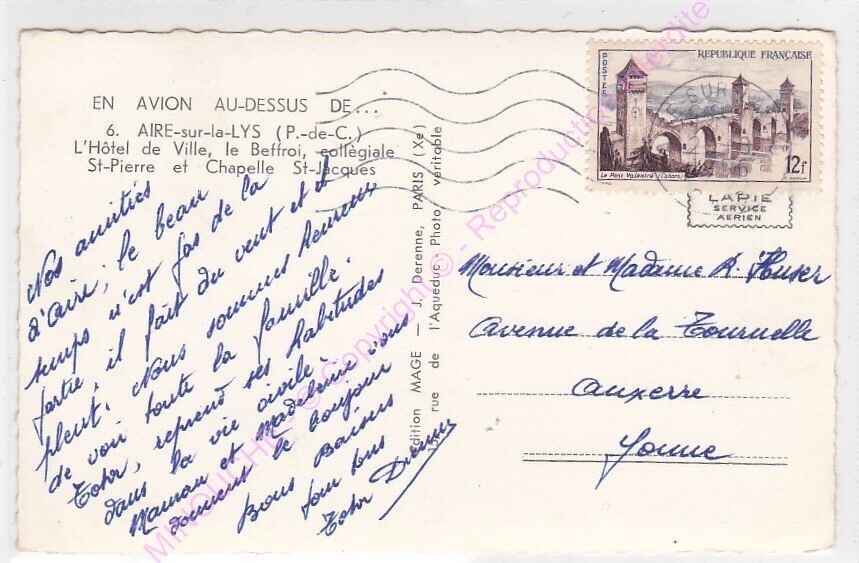 EN AVION AU-DESSUS DE...
6. AIRE-sur-la-LYS (P.-de-C.)
L'Hôtel de Ville, le Beffroi, collégiale
St-Pierre et Chapelle St-Jacques
Nos amitiés
d'Aire, le beau
temps n'est pas de la
partie, il fait du vent et il
pleut. Nous sommes heureux
de voir toute la famille.
reprend ses habitudes
dans la vie civile.
Maman et Madeleine vous
donnent le bonjour
Bons Baisers
pour tous
Edition MAGE — J. Derenne, PARIS (Xe)
rue de l'Aqueduc Photo véritable
REPUBLIQUE FRANÇAISE
POSTES
Le Pont Valentré Cahors
12f
SUR
LAPIE
SERVICE
AERIEN
Monsieur et Madame R.
Avenue de la Tournelle
Auxerre
Yonne
MINOUCHE © Copyright © - Reproduction interdite